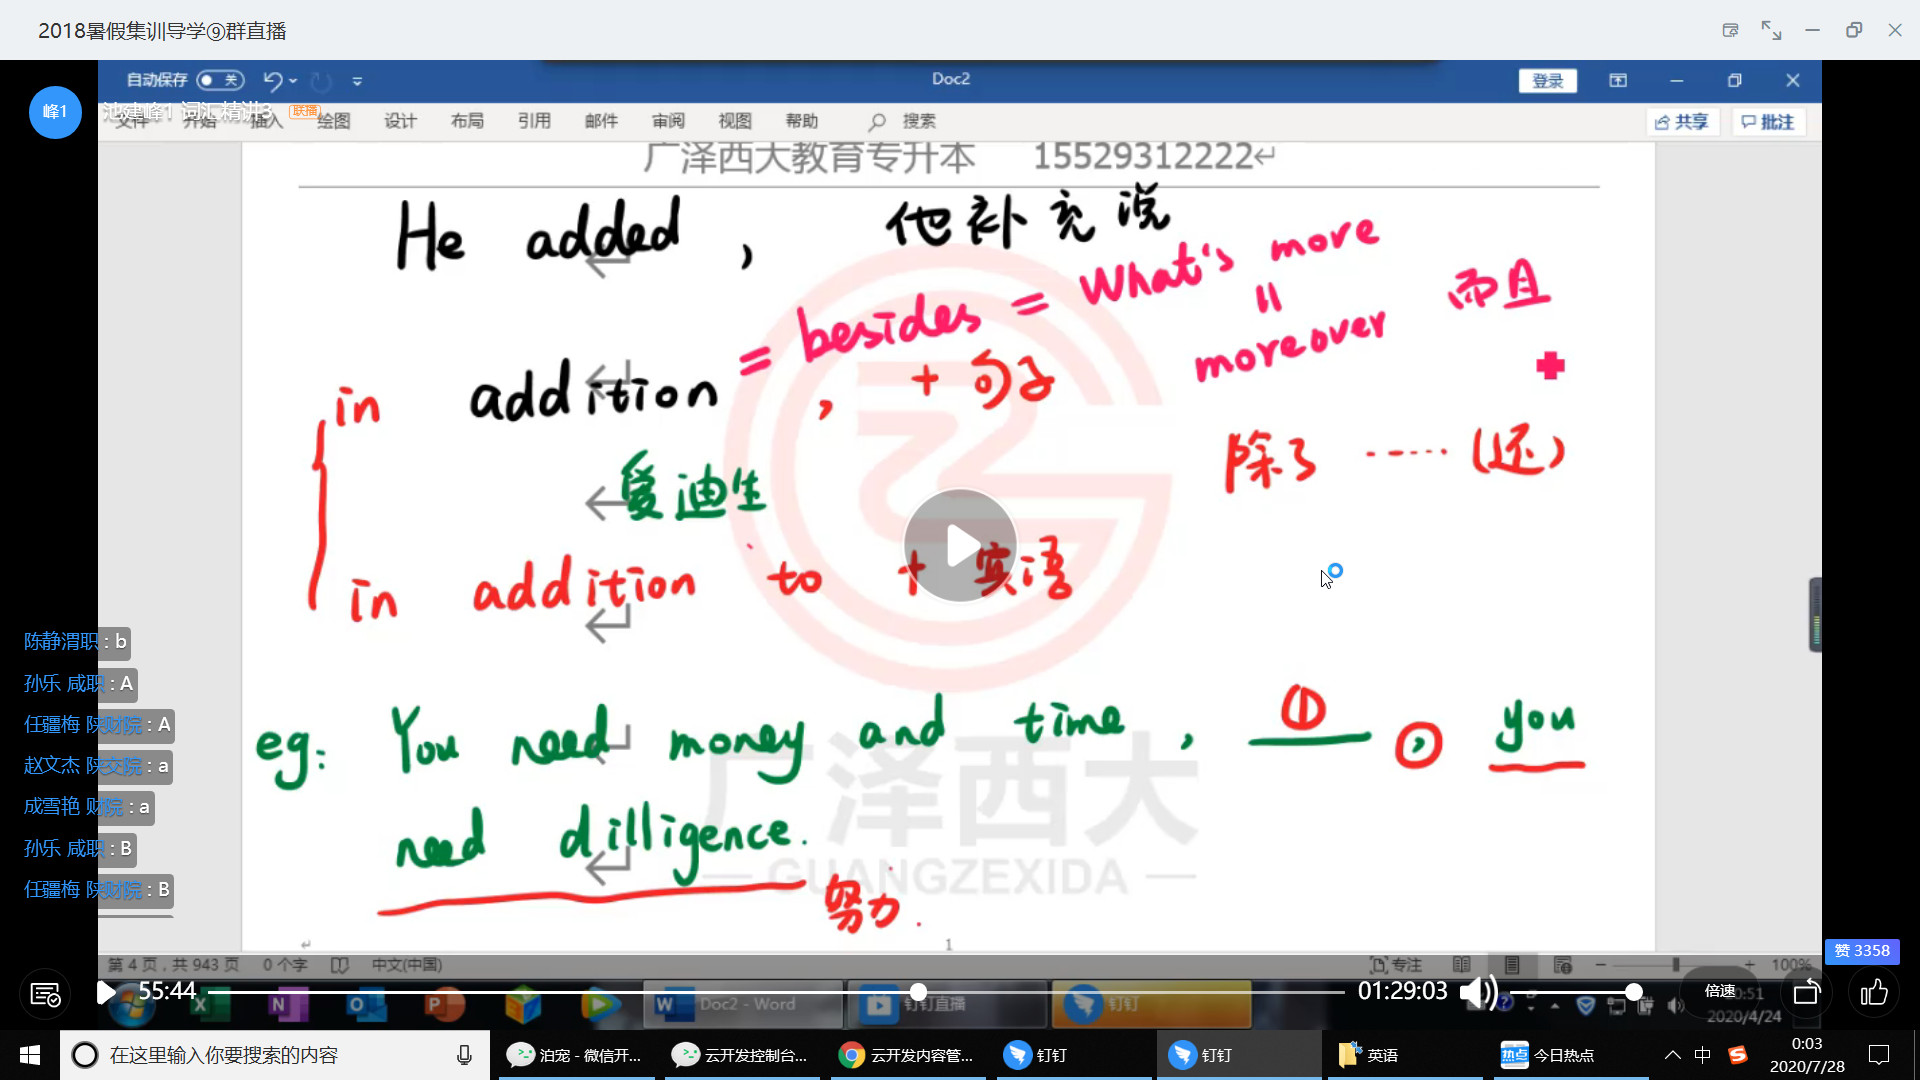 2018暑假集训导学⑨群直播
自动保存 关 Doc2 登录
峰1 池建峰1 词汇精讲3 联播
文件 开始 插入 绘图 设计 布局 引用 邮件 审阅 视图 帮助 搜索 共享 批注
广泽西大教育专升本 15529312222
He added , 他补充说
= besides = What's more
=
moreover 而且
in addition , + 句子
除了 ······ (还)
爱迪生
in addition to + 宾语
eg: You need money and time , ① , you
need dilligence.
努力.
广泽西大
GUANGZEXIDA
陈静渭职 : b
孙乐 咸职 : A
任疆梅 陕财院 : A
赵文杰 陕交院 : a
成雪艳 财院 : a
孙乐 咸职 : B
任疆梅 陕财院 : B
1
赞 3358
第 4 页，共 943 页 0 个字 中文(中国) 专注 100%
55:44 01:29:03 倍速
Doc2 - Word 钉钉直播 钉钉 2020/4/24
在这里输入你要搜索的内容 泊宠 - 微信开... 云开发控制台... 云开发内容管... 钉钉 钉钉 英语 热点 今日热点 中 0:03
2020/7/28